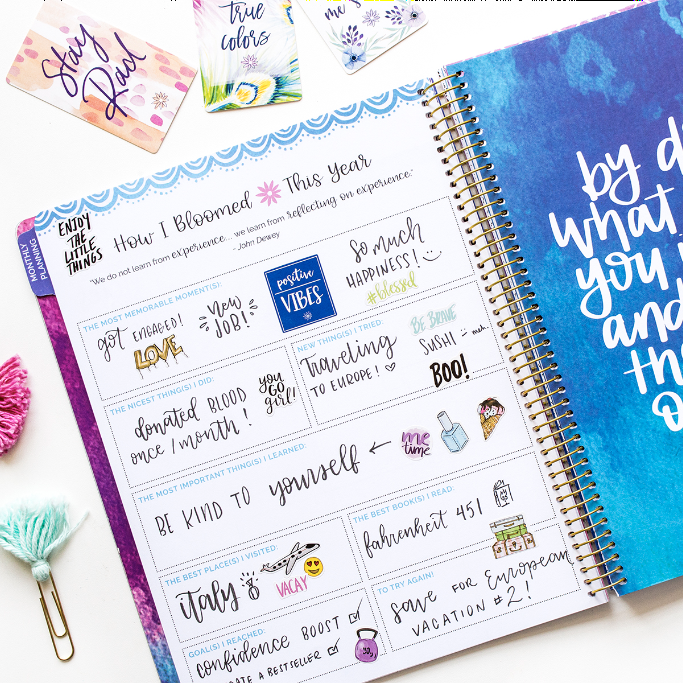 Stay
Rad
true
colors
me
MONTHLY
PLANNING
ENJOY
THE
LITTLE
THINGS
How I Bloomed This Year
"We do not learn from experience... we learn from reflecting on experience."
- John Dewey
THE MOST MEMORABLE MOMENT(S):
got ENGAGED!
LOVE
New
JOB!
positive
VIBES
So much
HAPPINESS!
#blessed
THE NICEST THING(S) I DID:
donated BLOOD
once /month!
you
GO
girl!
NEW THING(S) I TRIED:
Traveling
TO EUROPE!
BE BRAVE
SUSHI - meh.
BOO!
THE MOST IMPORTANT THING(S) I LEARNED:
BE KIND TO yourself
me
time
THE BEST PLACE(S) I VISITED:
italy
VACAY
THE BEST BOOK(S) I READ:
fahrenheit 451
GOAL(S) I REACHED:
confidence BOOST
A BESTSELLER
TO TRY AGAIN!
save FOR European
VACATION #2!
by
what
you
and